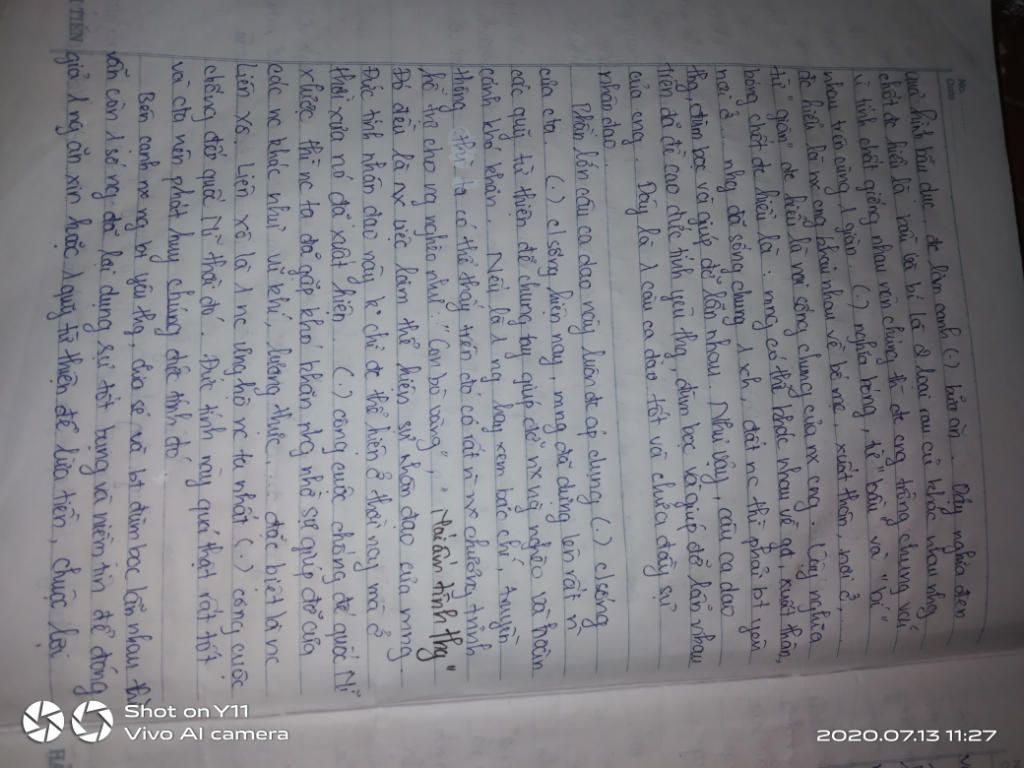 No.
Date
quả hình bầu dục, đc làm canh (.) bữa ăn. Đấy nghĩa đen
chốt đc hiểu là bầu và bí là 2 loại rau củ khác nhau nhg
vì tính chất giống nhau nên chúng thì đc cng trồng chung với
nhau trên cùng 1 giàn. (.) nghĩa bóng, từ "bầu" và "bí"
đc hiểu là nx cng khác nhau về bố mẹ, xuất thân, nơi ở,...
từ "giàn" đc hiểu là nơi sống chung của nx cng. Còn nghĩa
bóng chốt đc hiểu là: mng có thể khác nhau về gđ, xuất thân,
nơi ở... nhg đã sống chung 1 xh, đất nc thì phải bt yêu
thg, đùm bọc và giúp đỡ lẫn nhau. Như vậy, câu ca dao
trên đã đề cao đức tính yêu thg, đùm bọc và giúp đỡ lẫn nhau
của cng. Đây là 1 câu ca dao tốt và chứa đầy sự
nhân đạo.
Phần lớn câu ca dao này luôn đc áp dụng (.) c/sống
của cta. (.) c/sống hiện nay, mng đã dựng lên rất n`
các quỹ từ thiện để chung tay giúp đỡ nx ng nghèo và hoàn
cảnh khó khăn. Nếu là 1 ng hay xem báo chí, truyền
thông thì ta có thể thấy trên đó có rất n` nx chương trình
hỗ trợ cho ng nghèo như: "Con bò vàng", "Nhái ấn tình thg"
Đó đều là nx việc làm thể hiện sự nhân đạo của mng
Đức tính nhân đạo này k chỉ đc thể hiện ở thời nay mà ở
thời xưa nó đã xuất hiện. (.) công cuộc chống đế quốc Mĩ
xl nước thì nc ta đã gặp khó khăn nhg nhờ sự giúp đỡ của
các nc khác như vũ khí, lương thực... đặc biệt là nc
Liên xô. Liên xô là 1 nc ủng hộ nc ta nhất (.) công cuộc
chống đế quốc Mĩ thời đó. Đức tính này quả thật rất tốt
và cta nên phát huy chúng đức tính đó
Bên cạnh nx ng bt yêu thg, chia sẻ và bt đùm bọc lẫn nhau thì
vẫn còn 1 số ng đã lợi dụng sự tốt bụng và niềm tin để đóng
giả 1 ng ăn xin hoặc 1 quỹ từ thiện để lừa tiền, chuộc lợi
Shot on Y11
Vivo AI camera
2020.07.13 11:27